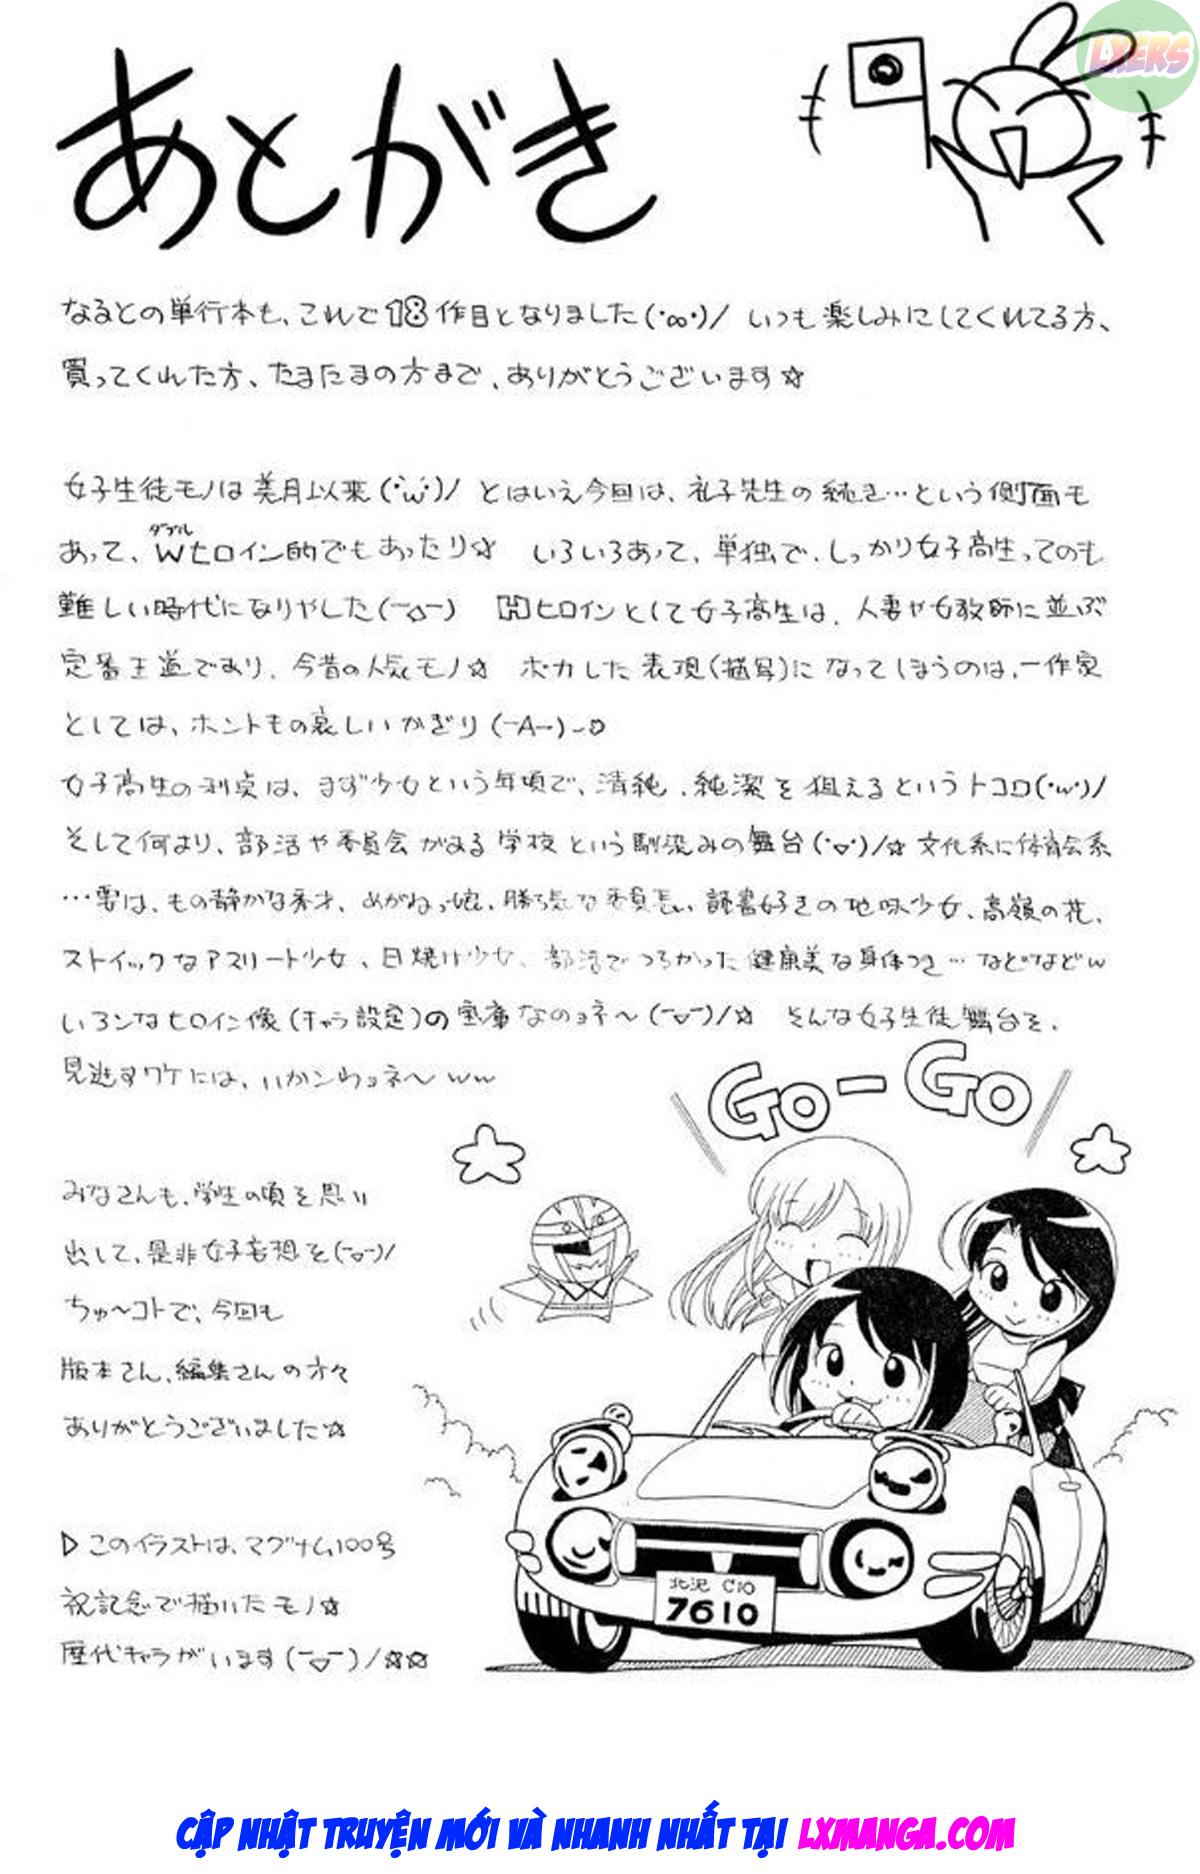 LXERS
あとがき
なるとの単行本も、これで18作目となりました(・∞・)/ いつも楽しみにしてくれてる方、
買ってくれた方、たまたまの方まで、ありがとうございます☆
女子生徒モノは美月以来(・w・)/ とはいえ今回は、礼子先生の続き…という側面も
ダブル
あって、Wヒロイン的でもあったり☆ いろいろあって、単独で、しっかり女子高生ってのも
難しい時代になりやした(ー△ー) Hヒロインとして女子高生は、人妻や女教師に並ぶ
定番王道であり、今昔の人気モノ☆ ボカした表現(描写)になってしまうのは、一作家
としては、ホントもの哀しいかぎり(ーAー)
女子高生の利点は、まず少女という年頃で、清純、純潔を狙えるというトコロ(・w・)/
そして何より、部活や委員会がある学校という馴染みの舞台(・▽・)/☆ 文化系に体育会系
…要は、もの静かな秀才、めがねっ娘、勝ち気な委員長、読書好きの地味少女、高嶺の花、
ストイックなアスリート少女、日焼け少女、部活でつちかった健康美な身体つき…などなどw
いろンなヒロイン像(キャラ設定)の宝庫なのョネ〜(ー▽ー)/☆ そんな女子生徒舞台を、
見逃すワケには、いかンわョネ〜ww
みなさんも、学生の頃を思い
出して、是非女子妄想を(ー▽ー)/
ちゅ〜コトで、今回も
版本さん、編集さんの方々
ありがとうございました☆
▷このイラストは、マグナム100号
祝記念で描いたモノ☆
歴代キャラがいます(ー▽ー)/☆☆
GO-GO
C10
7610
CẬP NHẬT TRUYỆN MỚI VÀ NHANH NHẤT TẠI LXMANGA.COM